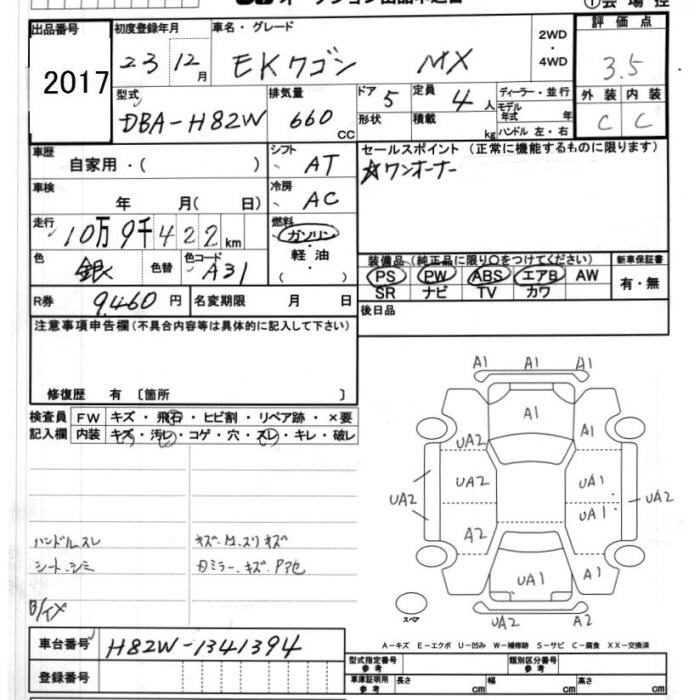 出品番号 初度登録年月 車名・グレード 評価点
2017 23 12月 EKワゴン MX 2WD・4WD 3.5
型式 排気量 ドア 定員 ディーラー・並行 外装 内装
DBA-H82W 660cc 5 4人 モデル年式 年 C C
形状 積載 kg ハンドル 左・右
車歴 自家用・( ) シフト AT セールスポイント (正常に機能するものに限ります)
☆ワンオーナー
車検 年 月( 日) 冷房 AC
走行 10万9千422km 燃料 ガソリン・軽油 ( )
色 銀 色替 色コード A31
装備品(純正品に限り○をつけてください) 新車保証書
PS PW ABS エアB AW 有・無
SR ナビ TV カワ
R券 9,460円 名変期限 月 日 後日品
注意事項申告欄(不具合内容等は具体的に記入して下さい)
修復歴 有 〔箇所 〕
検査員 FW キズ・飛石・ヒビ割・リペア跡・×要
記入欄 内装 キズ・汚レ・コゲ・穴・スレ・キレ・破レ
ハンドルスレ
シート、シミ
A1 A1 A1
A1
UA2 A1
UA2 UA2 UA1 UA2
UA1
A2 A1
UA1
UA2 A2
スペア
A-キズ E-エクボ U-凹み W-補修跡 S-サビ C-腐食 XX-交換済
車台番号 H82W-1341394
型式指定番号 参考 類別区分番号 参考
登録番号 車庫証明用 参考 長さ cm 幅 cm 高さ cm